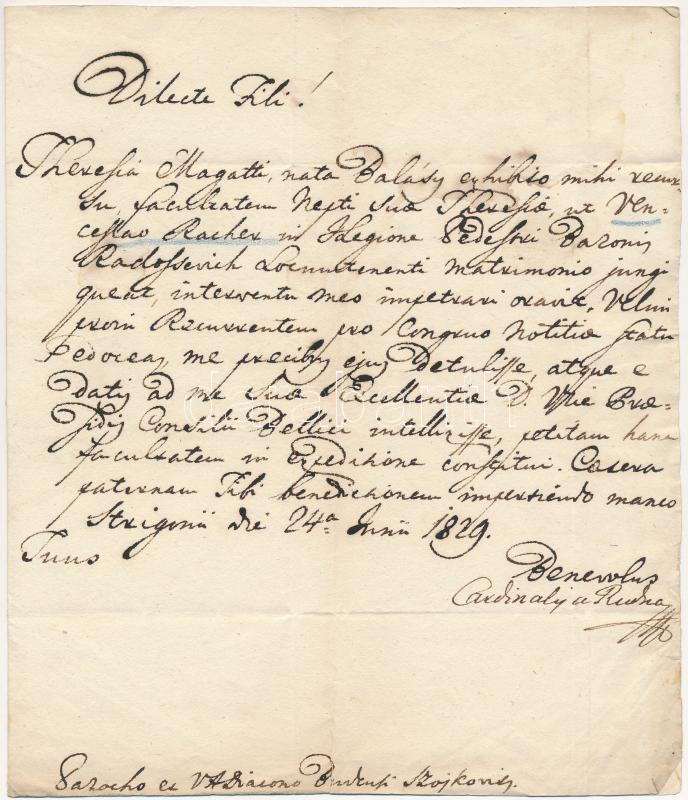 Dilecte Fili!
Theresia Magatti, nata Balásy exhibito mihi recur=
su, facultatem Nepti suæ Theresiæ, ut Ven=
ceslao Racher in Legione Pedestri Baronis
Radossevich Locumtenenti matrimonio jungi
queat, interventu meo impetrari oravit. Velim
proin Recurrentem pro congruo notitiæ statu
edoceas, me precibus ejus detulisse, atque e
datis ad me suæ Excellentiæ D. Præ=
sidis Consilii Bellici intellexisse, petitam hanc
facultatem in expeditione constitui. Cætera
paternam Tibi benedictionem impertiendo maneo
Strigonii die 24a Junii 1829.
Tuus
Benevolus
Cardinalis a Rudna
Parocho et VADiacono Budensi Szojkovics.